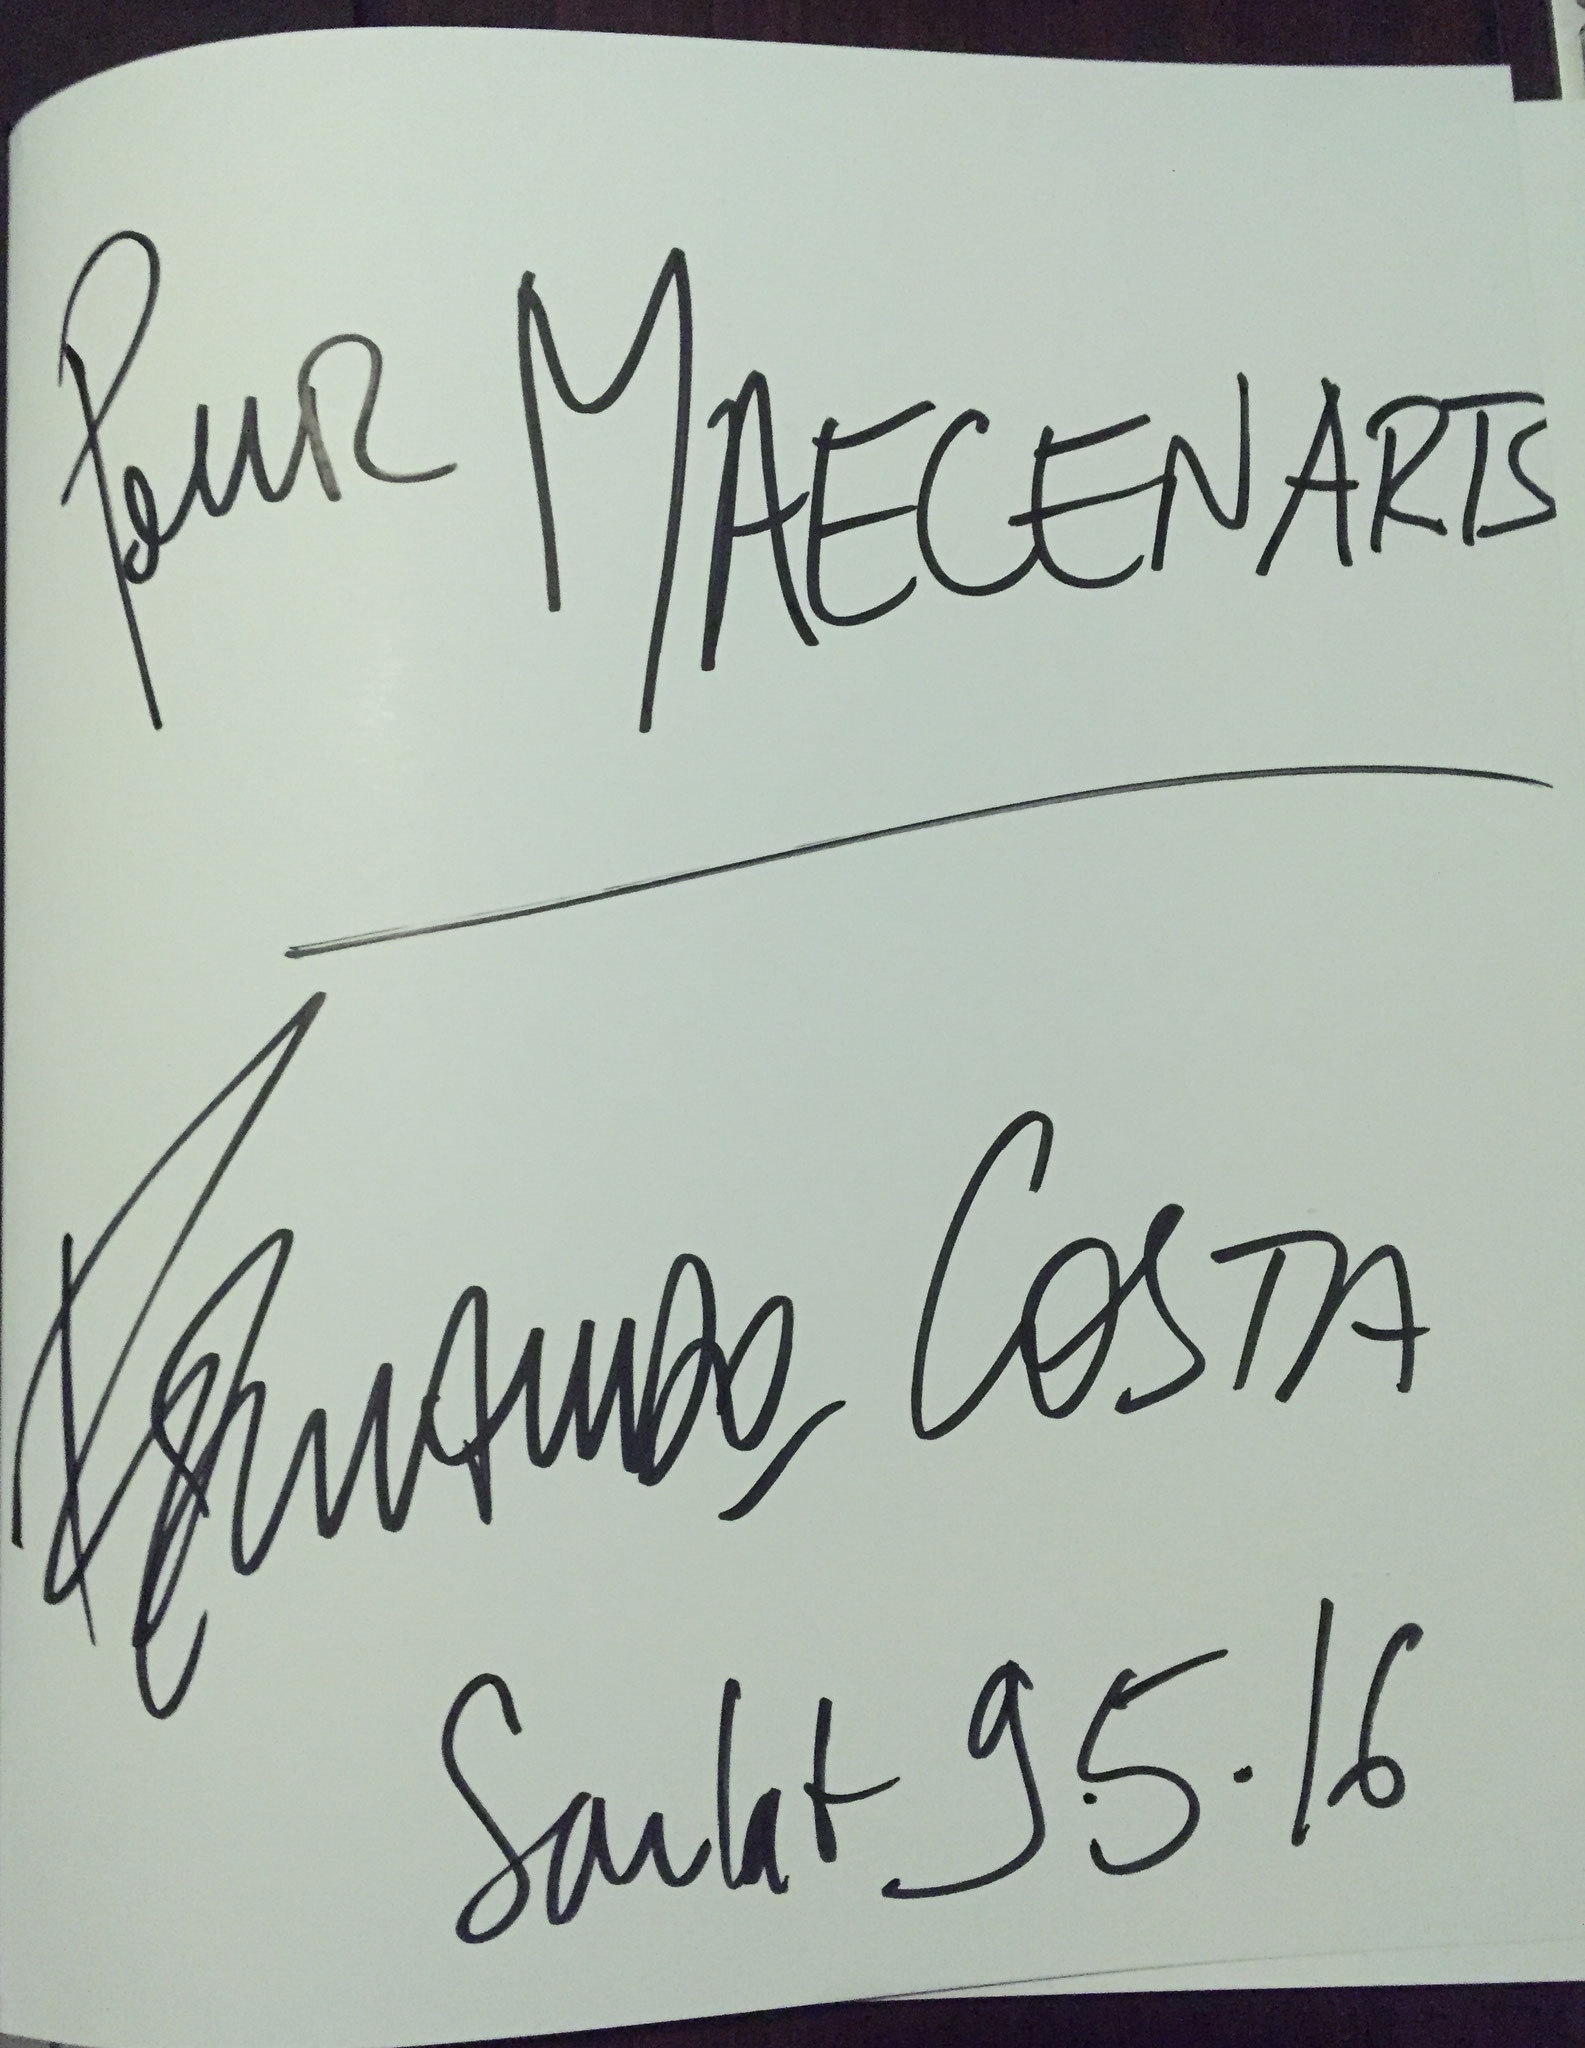 Pour MAECENARTS
Fernando COSTA
Sarlat 9.5.16